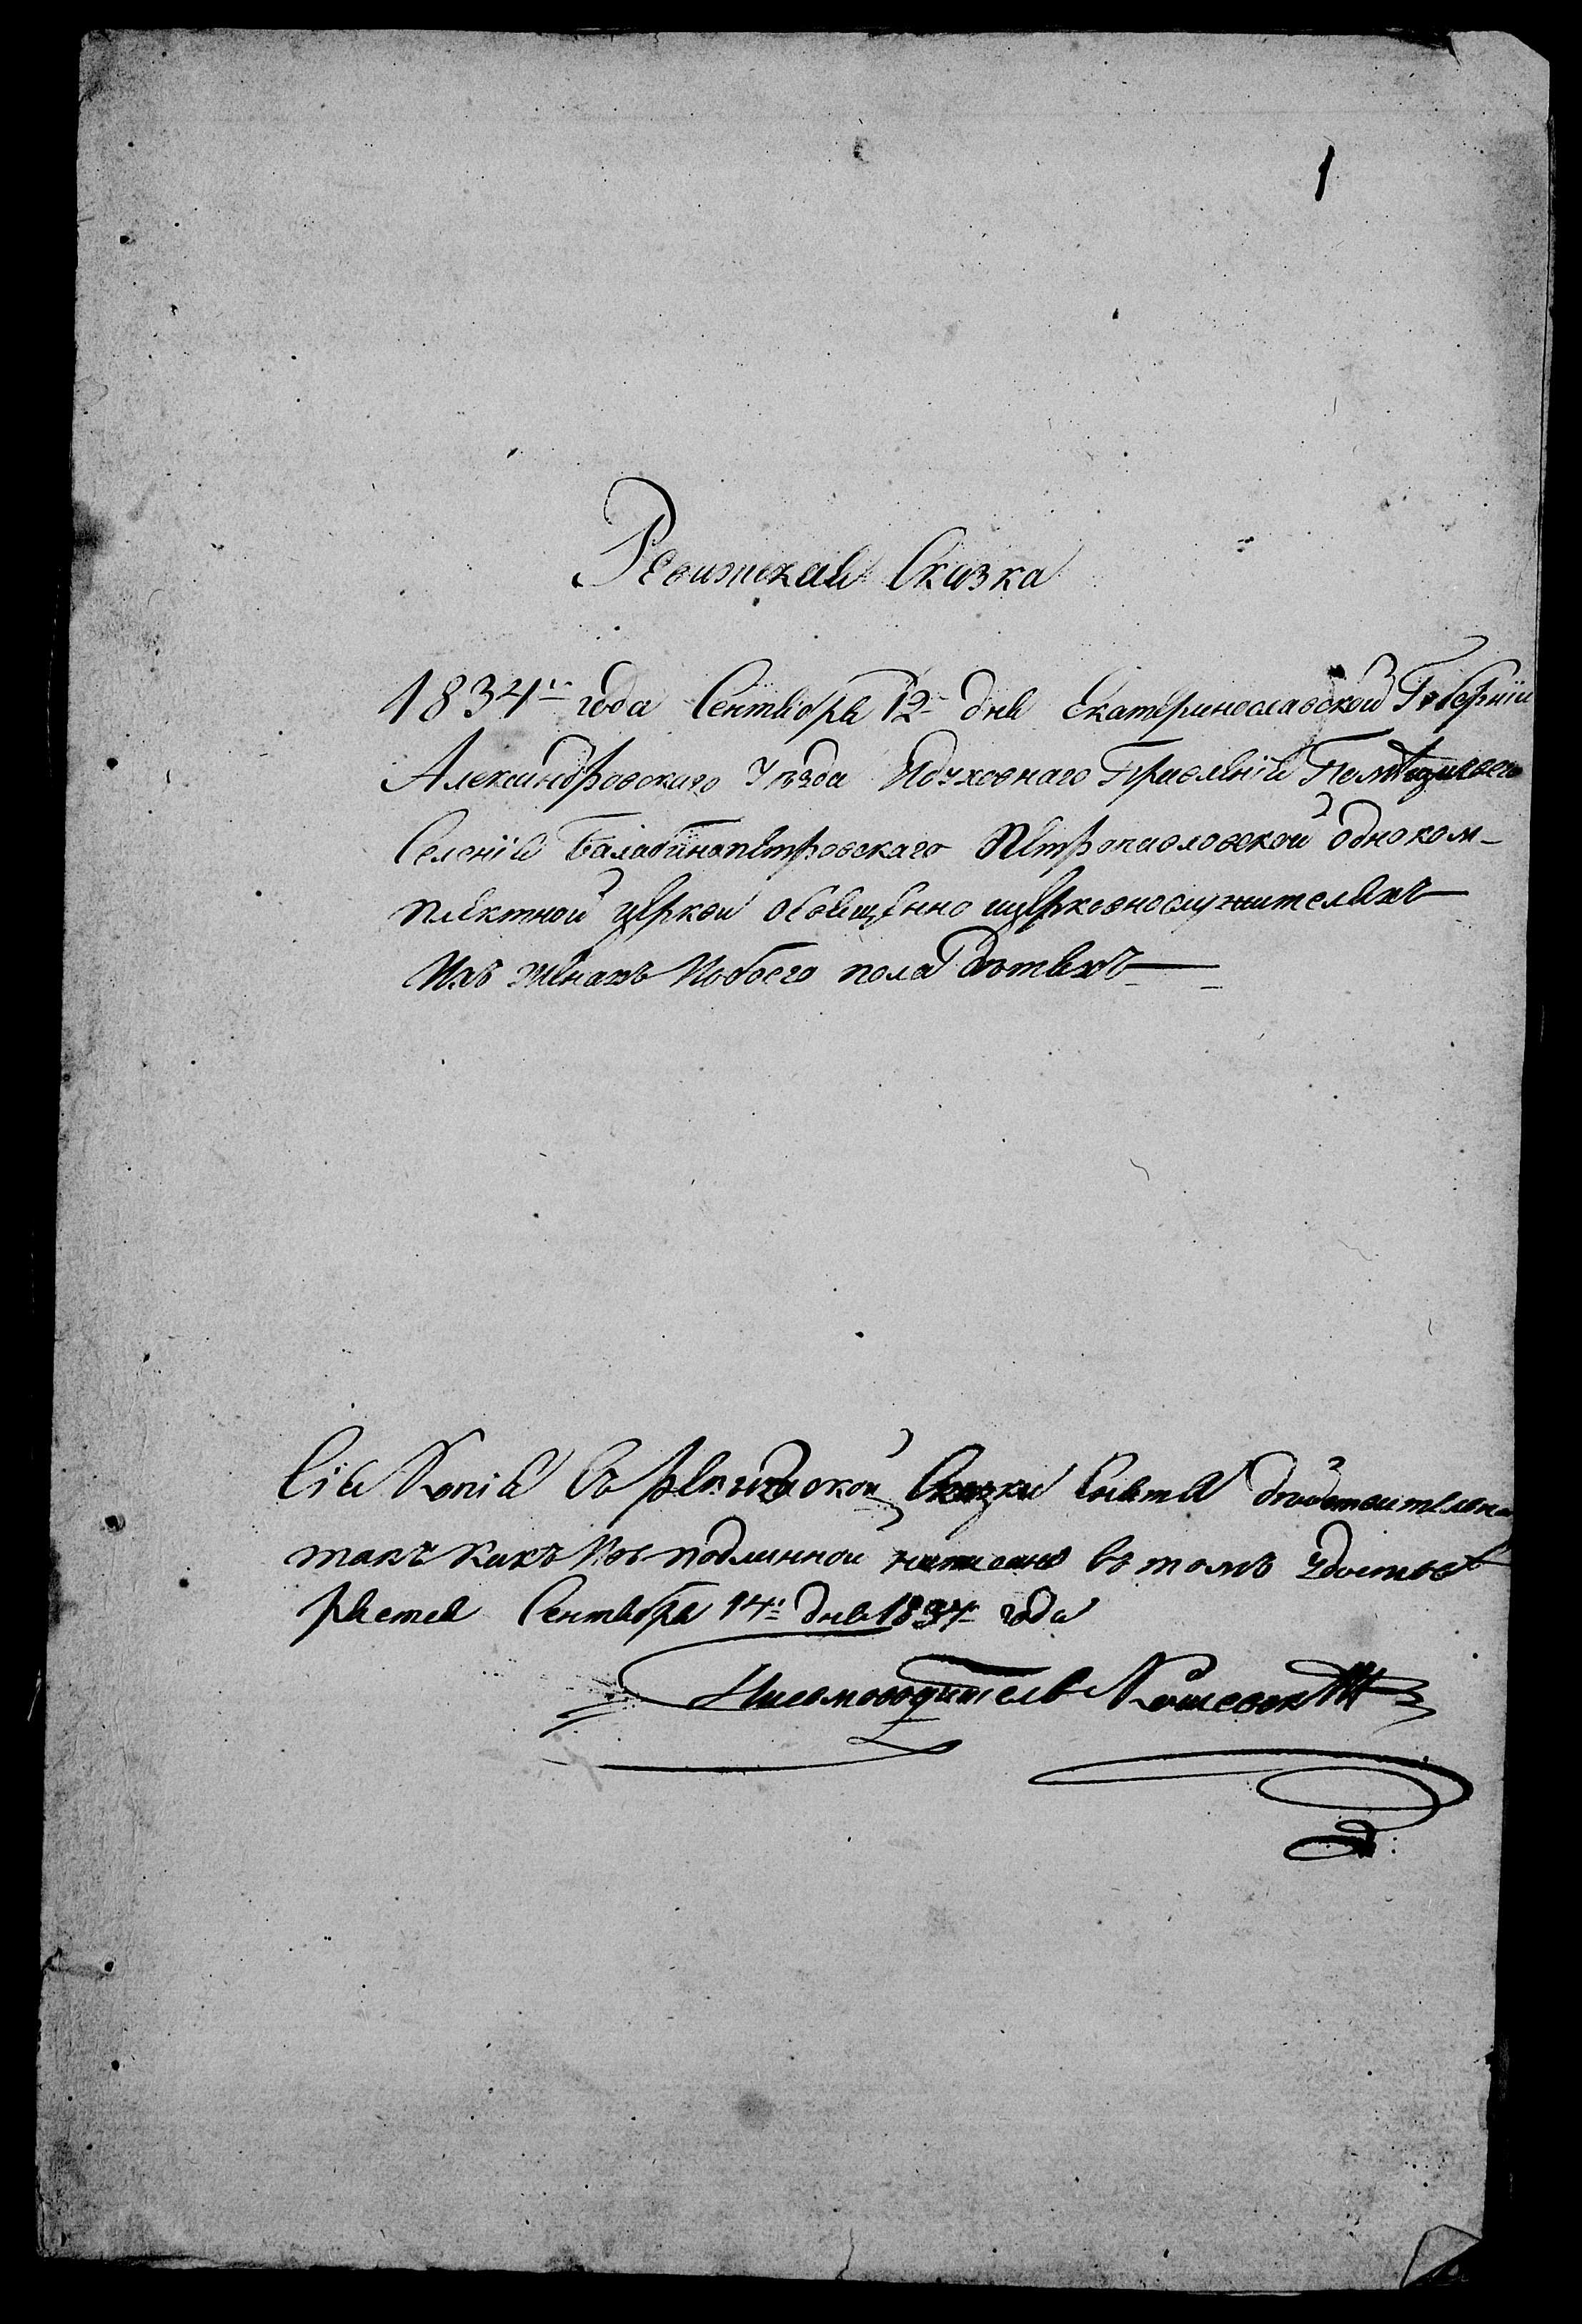 1
Ревижская Сказка
1834го года Сентября 12 дня Екатеринославской Губернїи
Александровскаго Уѣзда Идуховнаго Правленїя Помѣщичьего
Селенїя Балабинопетровскаго Петропавловской одноком-
плектной церкви освященно ицерковнослужителяхъ
Ихъ женахъ Иобоего пола дѣтяхъ
Сїя Копїя Съ ревижской Сказки Снята действительно
такъ какъ Ивъ подлинной написано въ томъ удостов
ряется Сентября 14го дня 1834 года
Писмоводитель